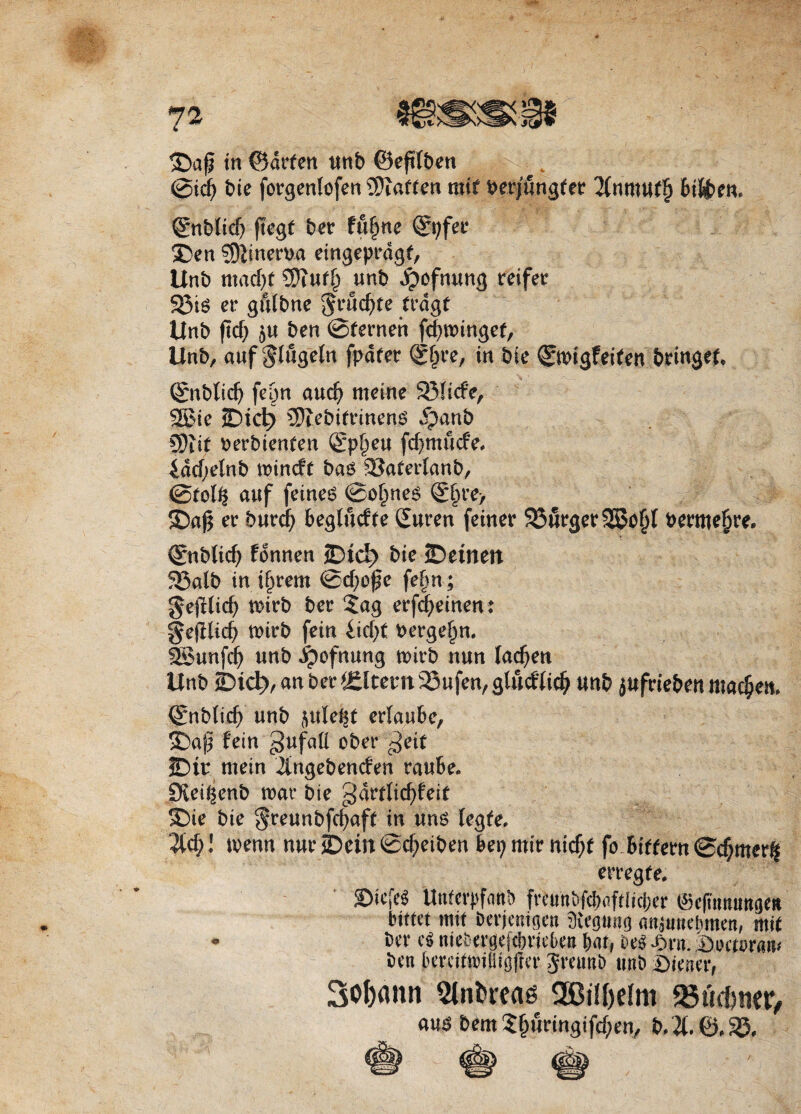 72
Daß in Gärten und Gefilden
Sich die sorgenlosen Matten mit verjüngter Anmuth bilden.
Endlich siegt der kühne Eyfer
Den Minerva eingeprägt,
Und macht Muth und Hofnung reifer
Bis er güldne Früchte trägt
Und sich zu den Sternen schwinget,
Und, auf Flügeln später Ehre, in die Ewigkeiten bringet.
Endlich sehn auch meine Blicke,
Wie Dich Meditrinens Hand
Mit verdienten Epheu schmücke.
Lächelnd winckt das Vaterland,
Stoltz auf seines Sohnes Ehre,
Daß er durch beglückte Curen seiner Bürger Wohl vermehre.
Endlich können Dich die Deinen
Bald in ihrem Schoße sehn;
Festlich wird der Tag erscheinen:
Festlich wird sein Licht vergehn.
Wunsch und Hofnung wird nun lachen
Und Dich, an der Eltern Busen, glücklich und zufrieden machen.
Endlich und zuletzt erlaube,
Daß kein Zufall oder Zeit
Dir mein Angedencken raube.
Reitzend war die Zärtlichkeit
Die die Freundschaft in uns legte.
Ach! wenn nur Dein Scheiden bey mir nicht so bittern Schmertz
erregte.
Dieses Unterpfand freundschaftlicher Gesinnungen
bittet mit derjenigen Regung anzunehmen, mit
der es niedergeschrieben hat, des Hrn. Doctoran-
den bereitwilligster Freund und Diener,
Johann Andreas Wilhelm Büchner,
aus dem Thüringischen, d. A. G. B.